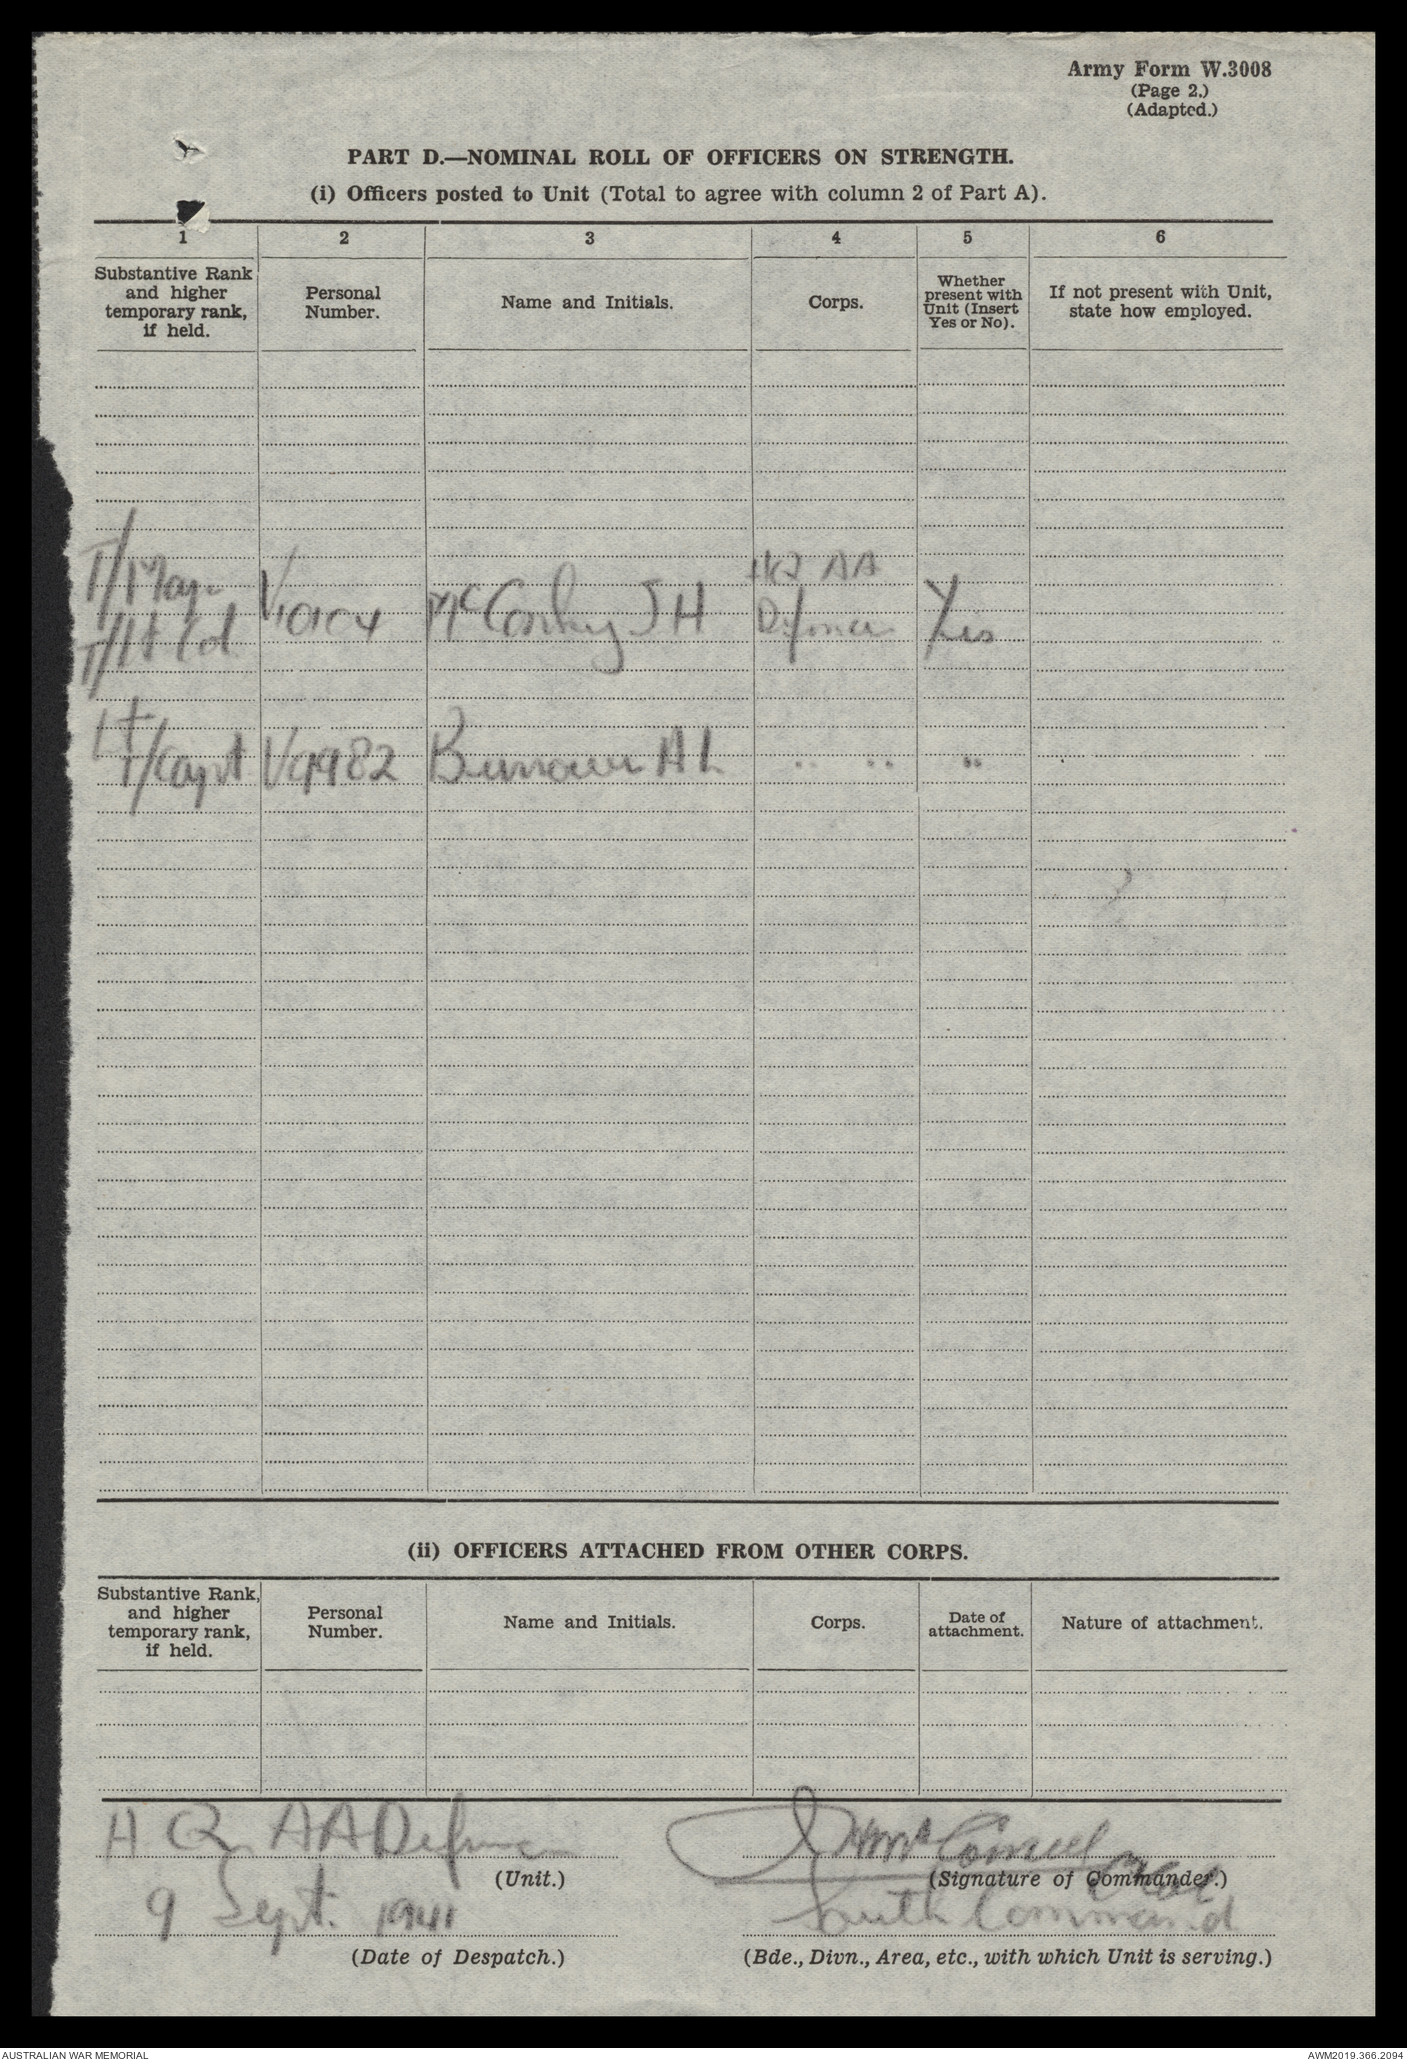 Army Form W.3008
(Page 2.)
(Adapted.)
PART D.—NOMINAL ROLL OF OFFICERS ON STRENGTH.
(i) Officers posted to Unit (Total to agree with column 2 of Part A).
1 2 3 4 5 6
Substantive Rank and higher temporary rank, if held.
Personal Number.
Name and Initials.
Corps.
Whether present with Unit (Insert Yes or No).
If not present with Unit, state how employed.
T/Maj
T/Lt Col
J H
HQ AA
Yes
Lt
T/Capt
A L
" " "
(ii) OFFICERS ATTACHED FROM OTHER CORPS.
Substantive Rank, and higher temporary rank, if held.
Personal Number.
Name and Initials.
Corps.
Date of attachment.
Nature of attachment.
H Q AA Defences
(Unit.)
(Signature of Commander.)
9 Sept. 1941
South Command
(Date of Despatch.)
(Bde., Divn., Area, etc., with which Unit is serving.)
AUSTRALIAN WAR MEMORIAL
AWM2019.366.2094